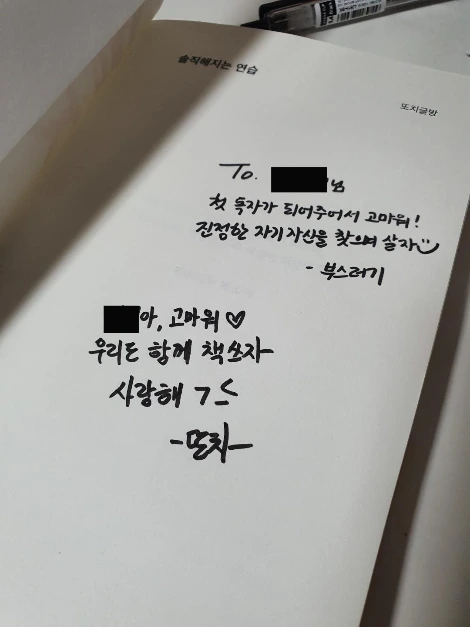 솔직해지는 연습
또치글방
To. 님
첫 독자가 되어주어서 고마워!
진정한 자기 자신을 찾으며 살자
- 부스러기
아, 고마워♡
우리도 함께 책쓰자
사랑해 ㄱㅅ
-또치-